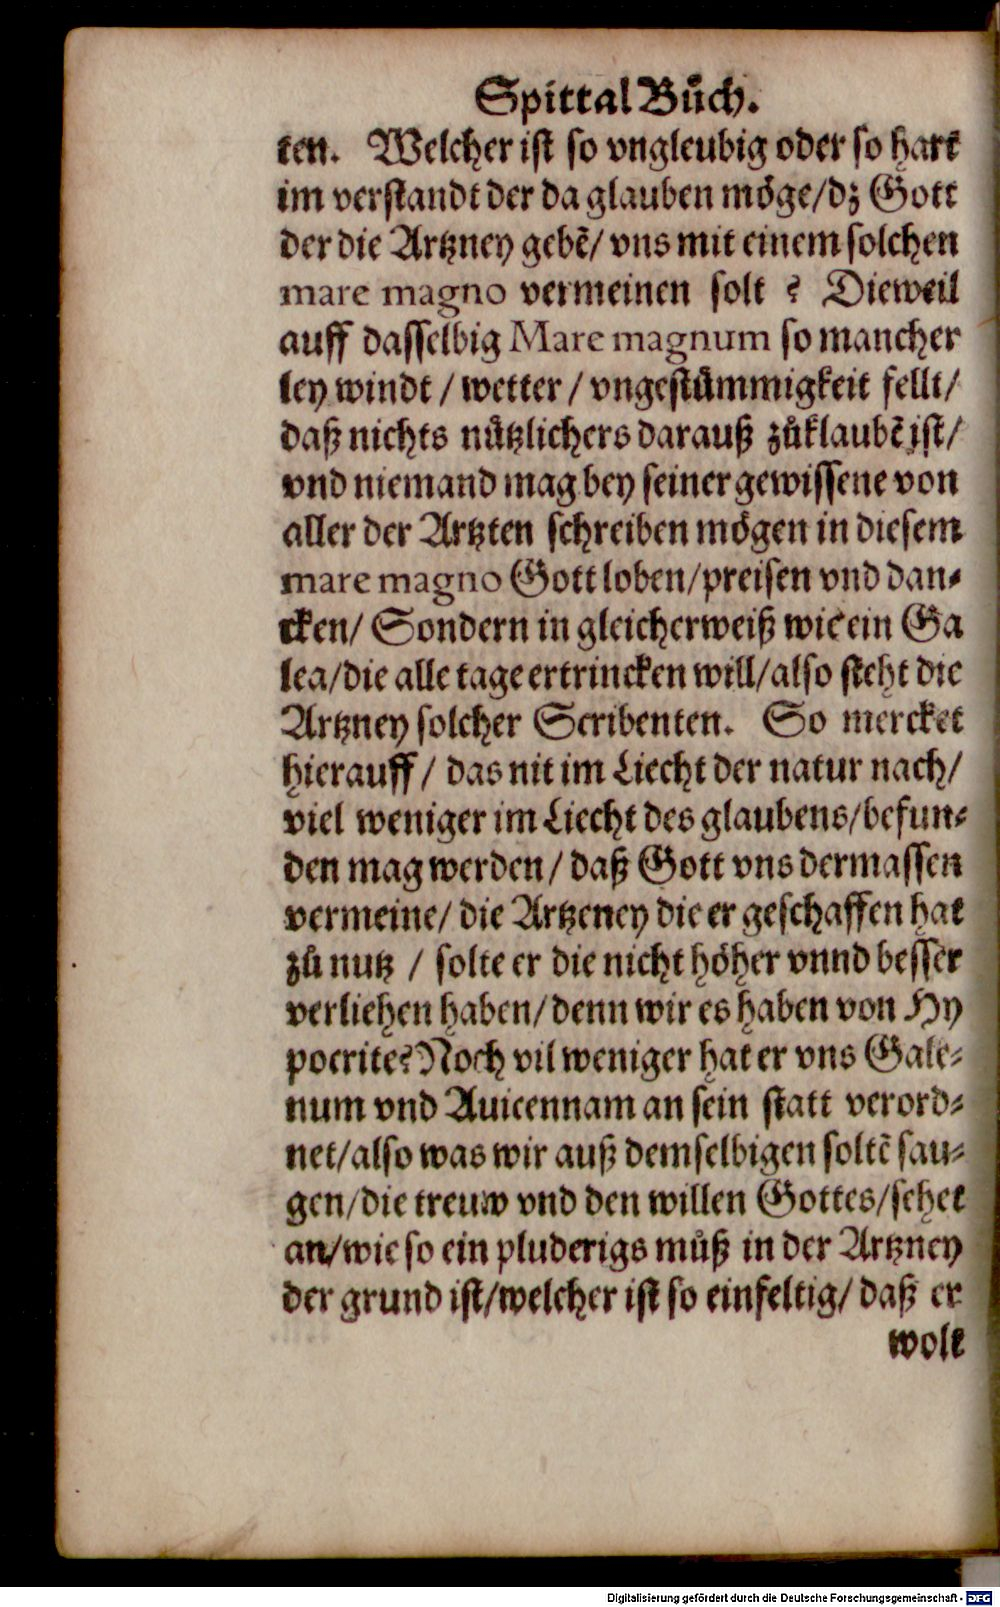 Spittal Bůch.
ten. Welcher ist so vngleubig oder so hart
im verstandt der da glauben möge/dz Gott
der die Artzney gebẽ/ vns mit einem solchen
mare magno vermeinen solt ? Dieweil
auff dasselbig Mare magnum so mancher
ley windt / wetter / vngestůmmigkeit fellt/
daß nichts nůtzlichers darauß zůklaubẽ ist/
vnd niemand mag bey seiner gewissene von
aller der Artzten schreiben mögen in diesem
mare magno Gott loben/preisen vnd dan-
cken/ Sondern in gleicherweiß wie ein Ga
lea/die alle tage ertrincken will/also steht die
Artzney solcher Scribenten. So mercket
hierauff / das nit im Liecht der natur nach/
viel weniger im Liecht des glaubens/befun-
den mag werden/ daß Gott vns dermassen
vermeine/ die Artzeney die er geschaffen hat
zů nutz / solte er die nicht höher vnnd besser
verliehen haben/denn wir es haben von Hy
pocrite? Noch vil weniger hat er vns Gale-
num vnd Auicennam an sein statt verord-
net/also was wir auß demselbigen soltẽ sau-
gen/die treuw vnd den willen Gottes/sehet
an/wie so ein pluderigs můß in der Artzney
der grund ist/welcher ist so einfeltig/ daß er
wolt
Digitalisierung gefördert durch die Deutsche Forschungsgemeinschaft - DFG